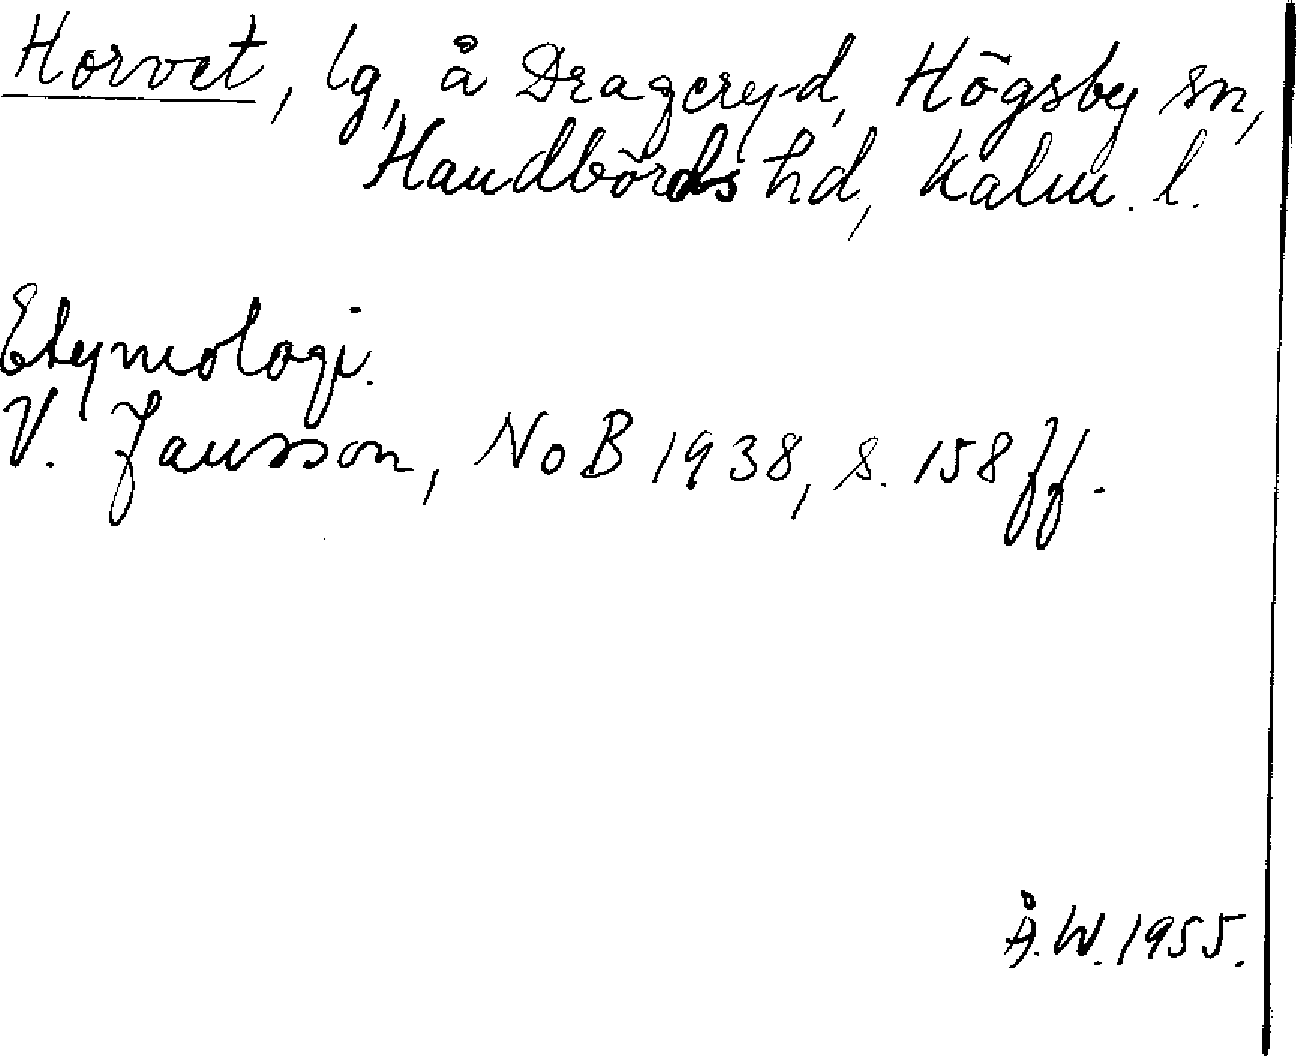 Horvet, lg, å Drageryd, Högsby sn,
Handbörds hd, Kalm. l.
Etymologi.
V. Jansson, NoB 1938, s. 158 ff.
Å.W. 1955.